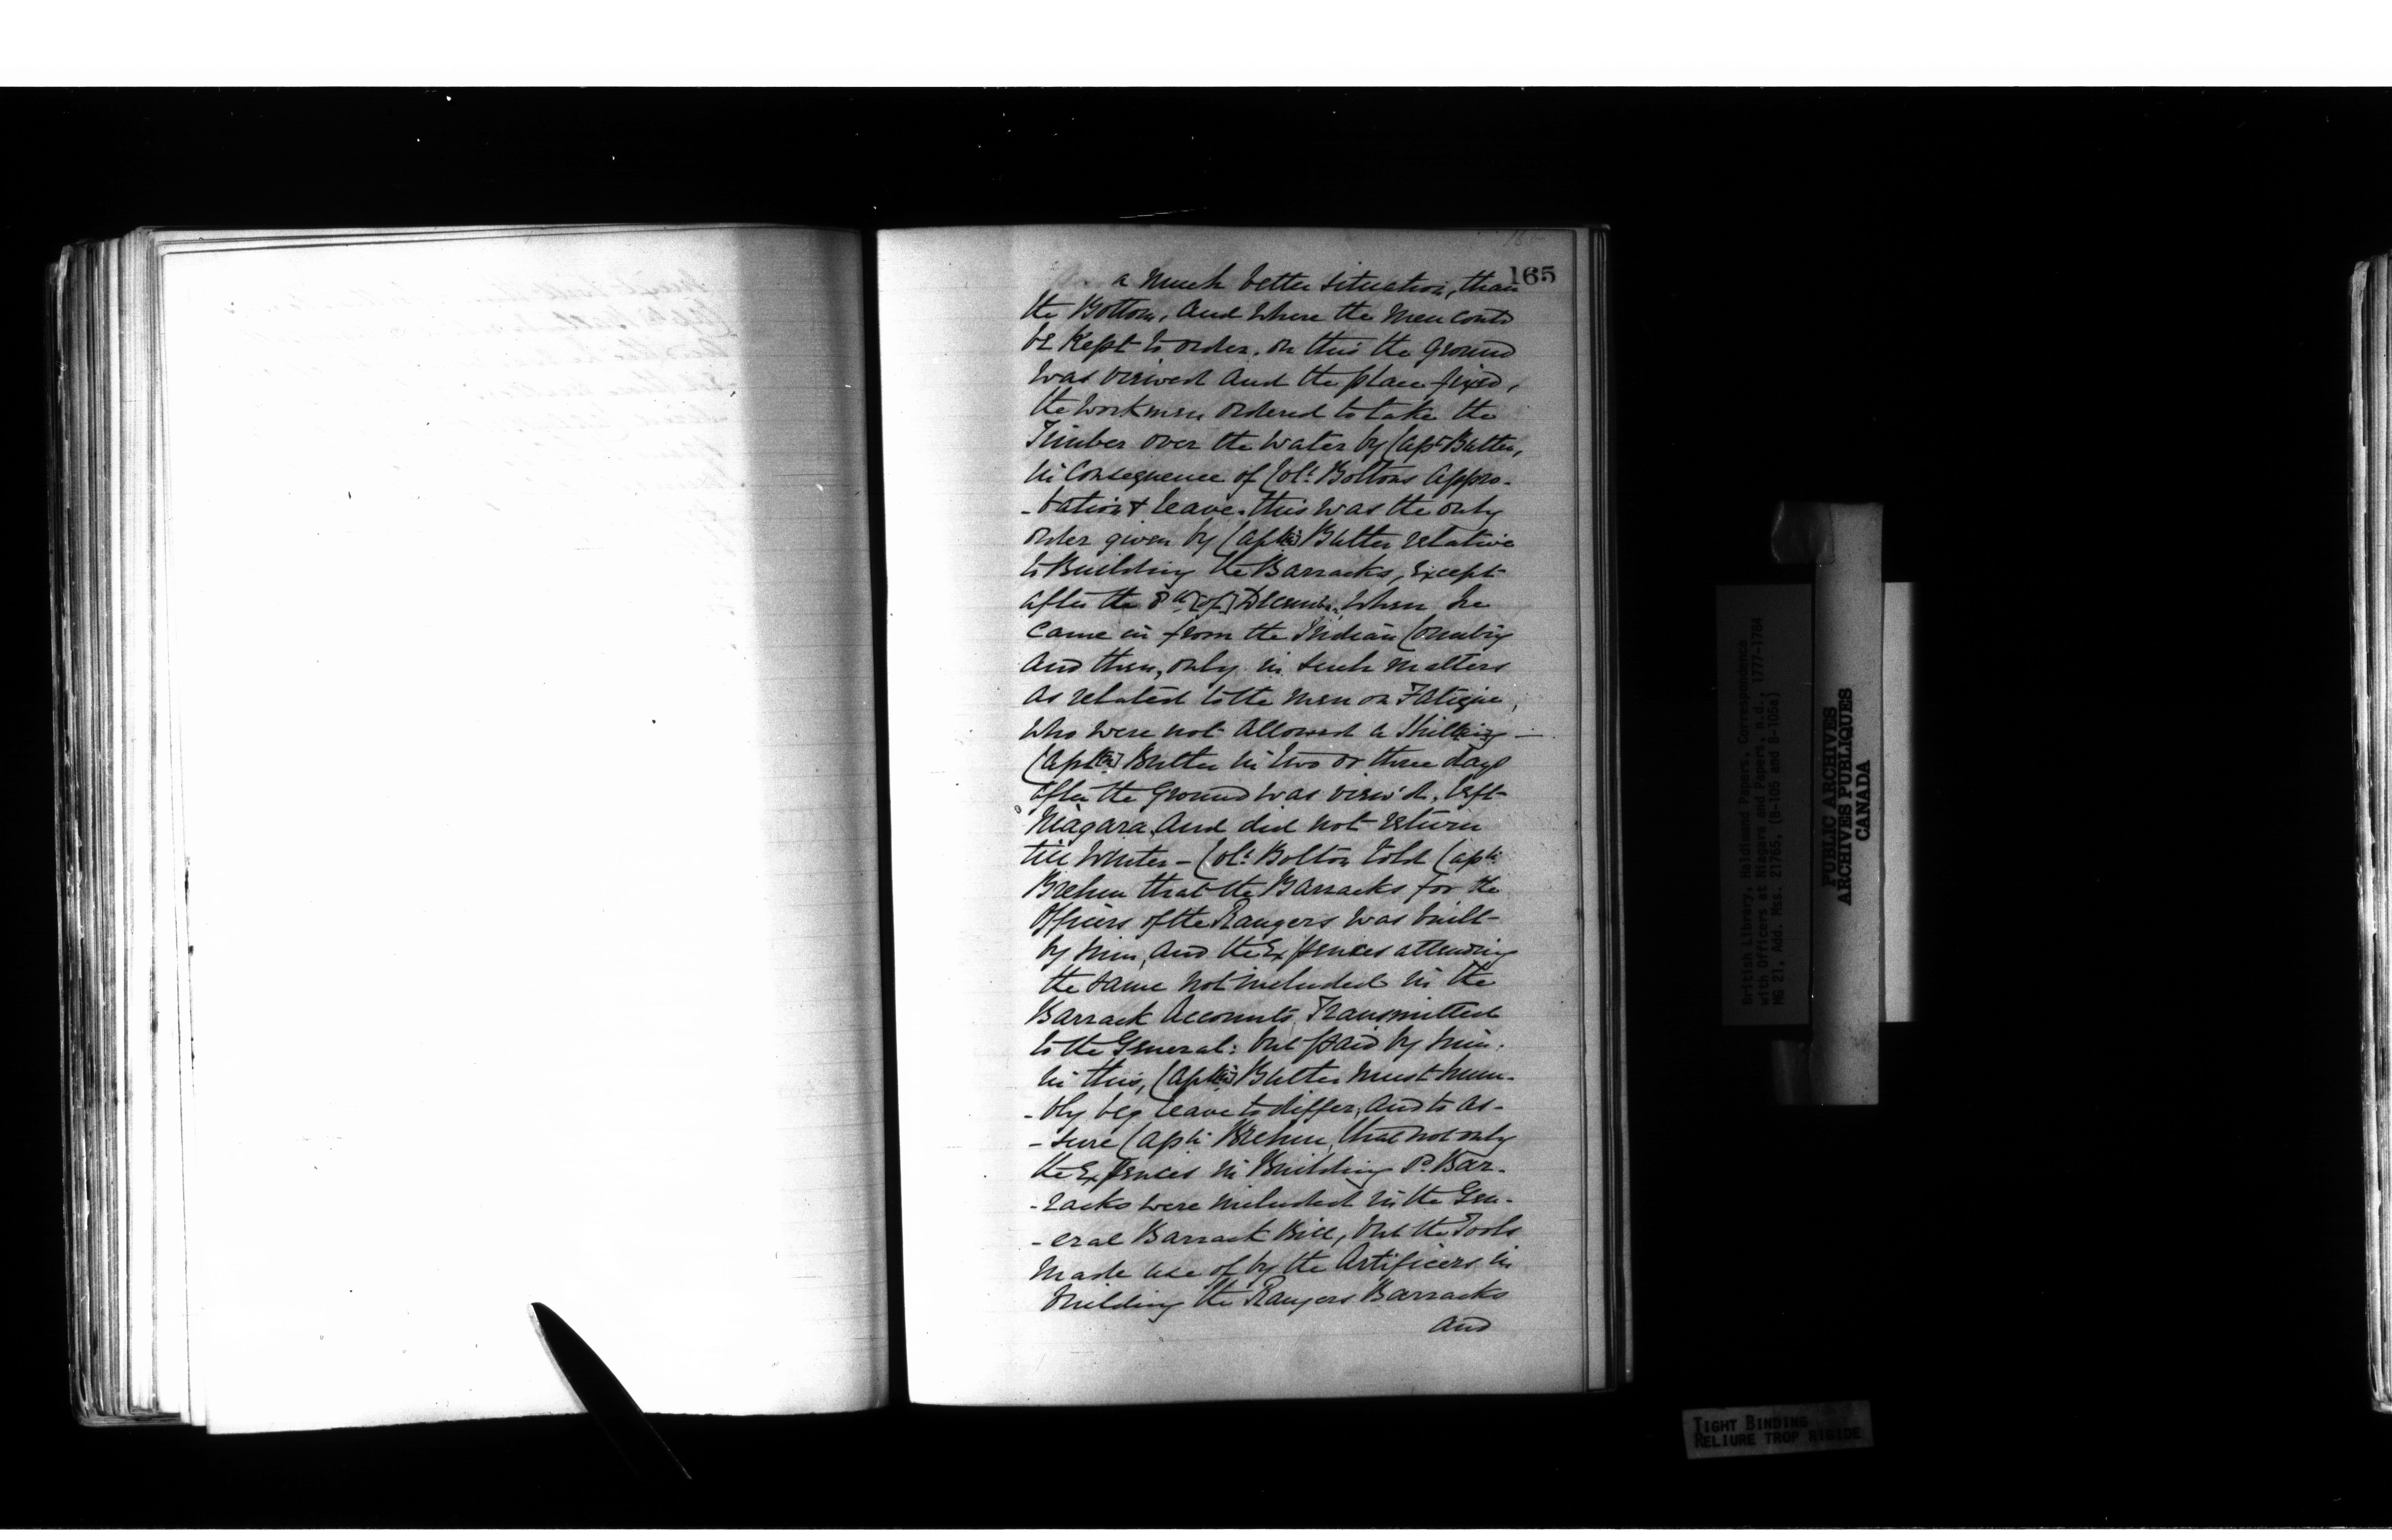 165
a much better situation, than
the Bottom, and where the men could
be Kept to order. on this the Ground
was viewed and the place fixed,
the workmen ordered to take the
Timber over the water by Capt. Butler,
in Consequence of Colo. Boltons Appro-
-bation & leave. this was the only
order given by Capt[ain] Butler relative
to Building the Barracks, Except
after the 8th [of] December, when he
came in from the Indian Country
and then, only in such matters
as related to the men on Fatigue,
who were not allowed a Shilling —
Capt[ain] Butler in two or three days
after the Ground was view'd, left
Niagara, and did not return
till Winter – Colo. Bolton told Captn.
Brehm that the Barracks for the
Officers of the Rangers was built
by him, and the Expences attending
the same not included in the
Barrack Accounts Transmitted
to the General: but paid by him.
in this, Capt[ain] Butler must hum-
-bly beg leave to differ, and to as-
-sure Captn. Brehm, that not only
the Expences in Building Sd. Bar-
-racks were included in the Gen-
-eral Barrack Bill, but the Tools
made use of by the Artificers in
building the Rangers Barracks
and
British Library, Haldimand Papers, Correspondence
with Officers at Niagara and Papers, n.d., 1777-1784
MG 21, Add. Mss. 21765, (B-105 and B-105a)
PUBLIC ARCHIVES
ARCHIVES PUBLIQUES
CANADA
TIGHT BINDING
RELIURE TROP RIGIDE